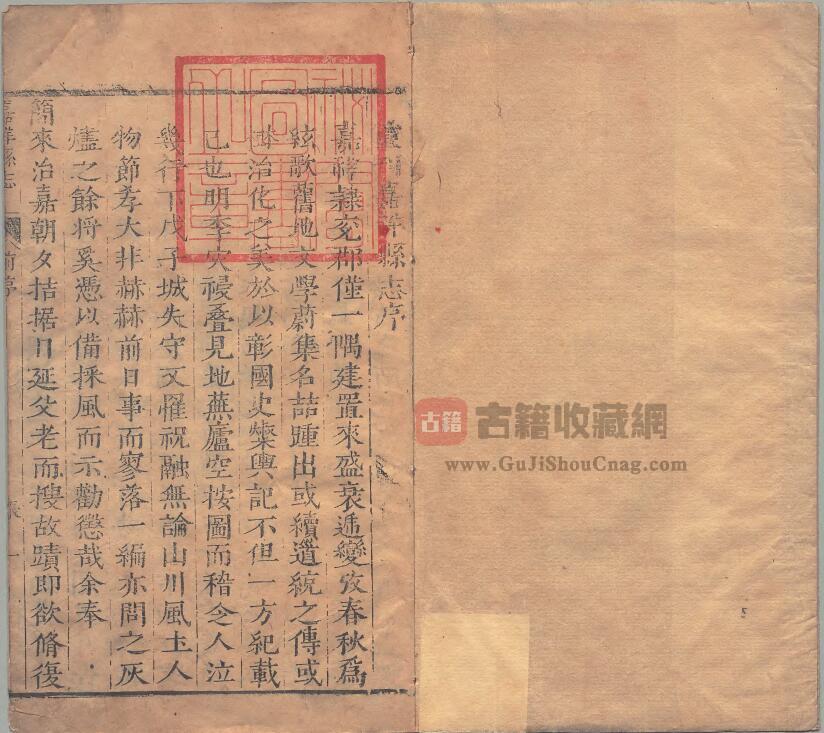 嘉祥縣志序
嘉祥隷兖郡僅一隅建置來盛衰遞變攷春秋爲
絃歌舊地文學蔚集名喆踵出或續道統之傳或
治化之美於以彰國史燦輿記不但一方紀載
已也明季災祲叠見地蕪廬空按圖而稽令人泣
幾行下戊子城失守又罹祝融無論山川風土人
物節孝大非赫赫前日事而寥落一編亦問之灰
燼之餘將奚憑以備採風而示勸懲哉余奉
簡來治嘉朝夕拮据日延父老而搜故蹟即欲脩復
嘉祥縣志
前序
一
古籍
古籍收藏網
www.GuJiShouCnag.com